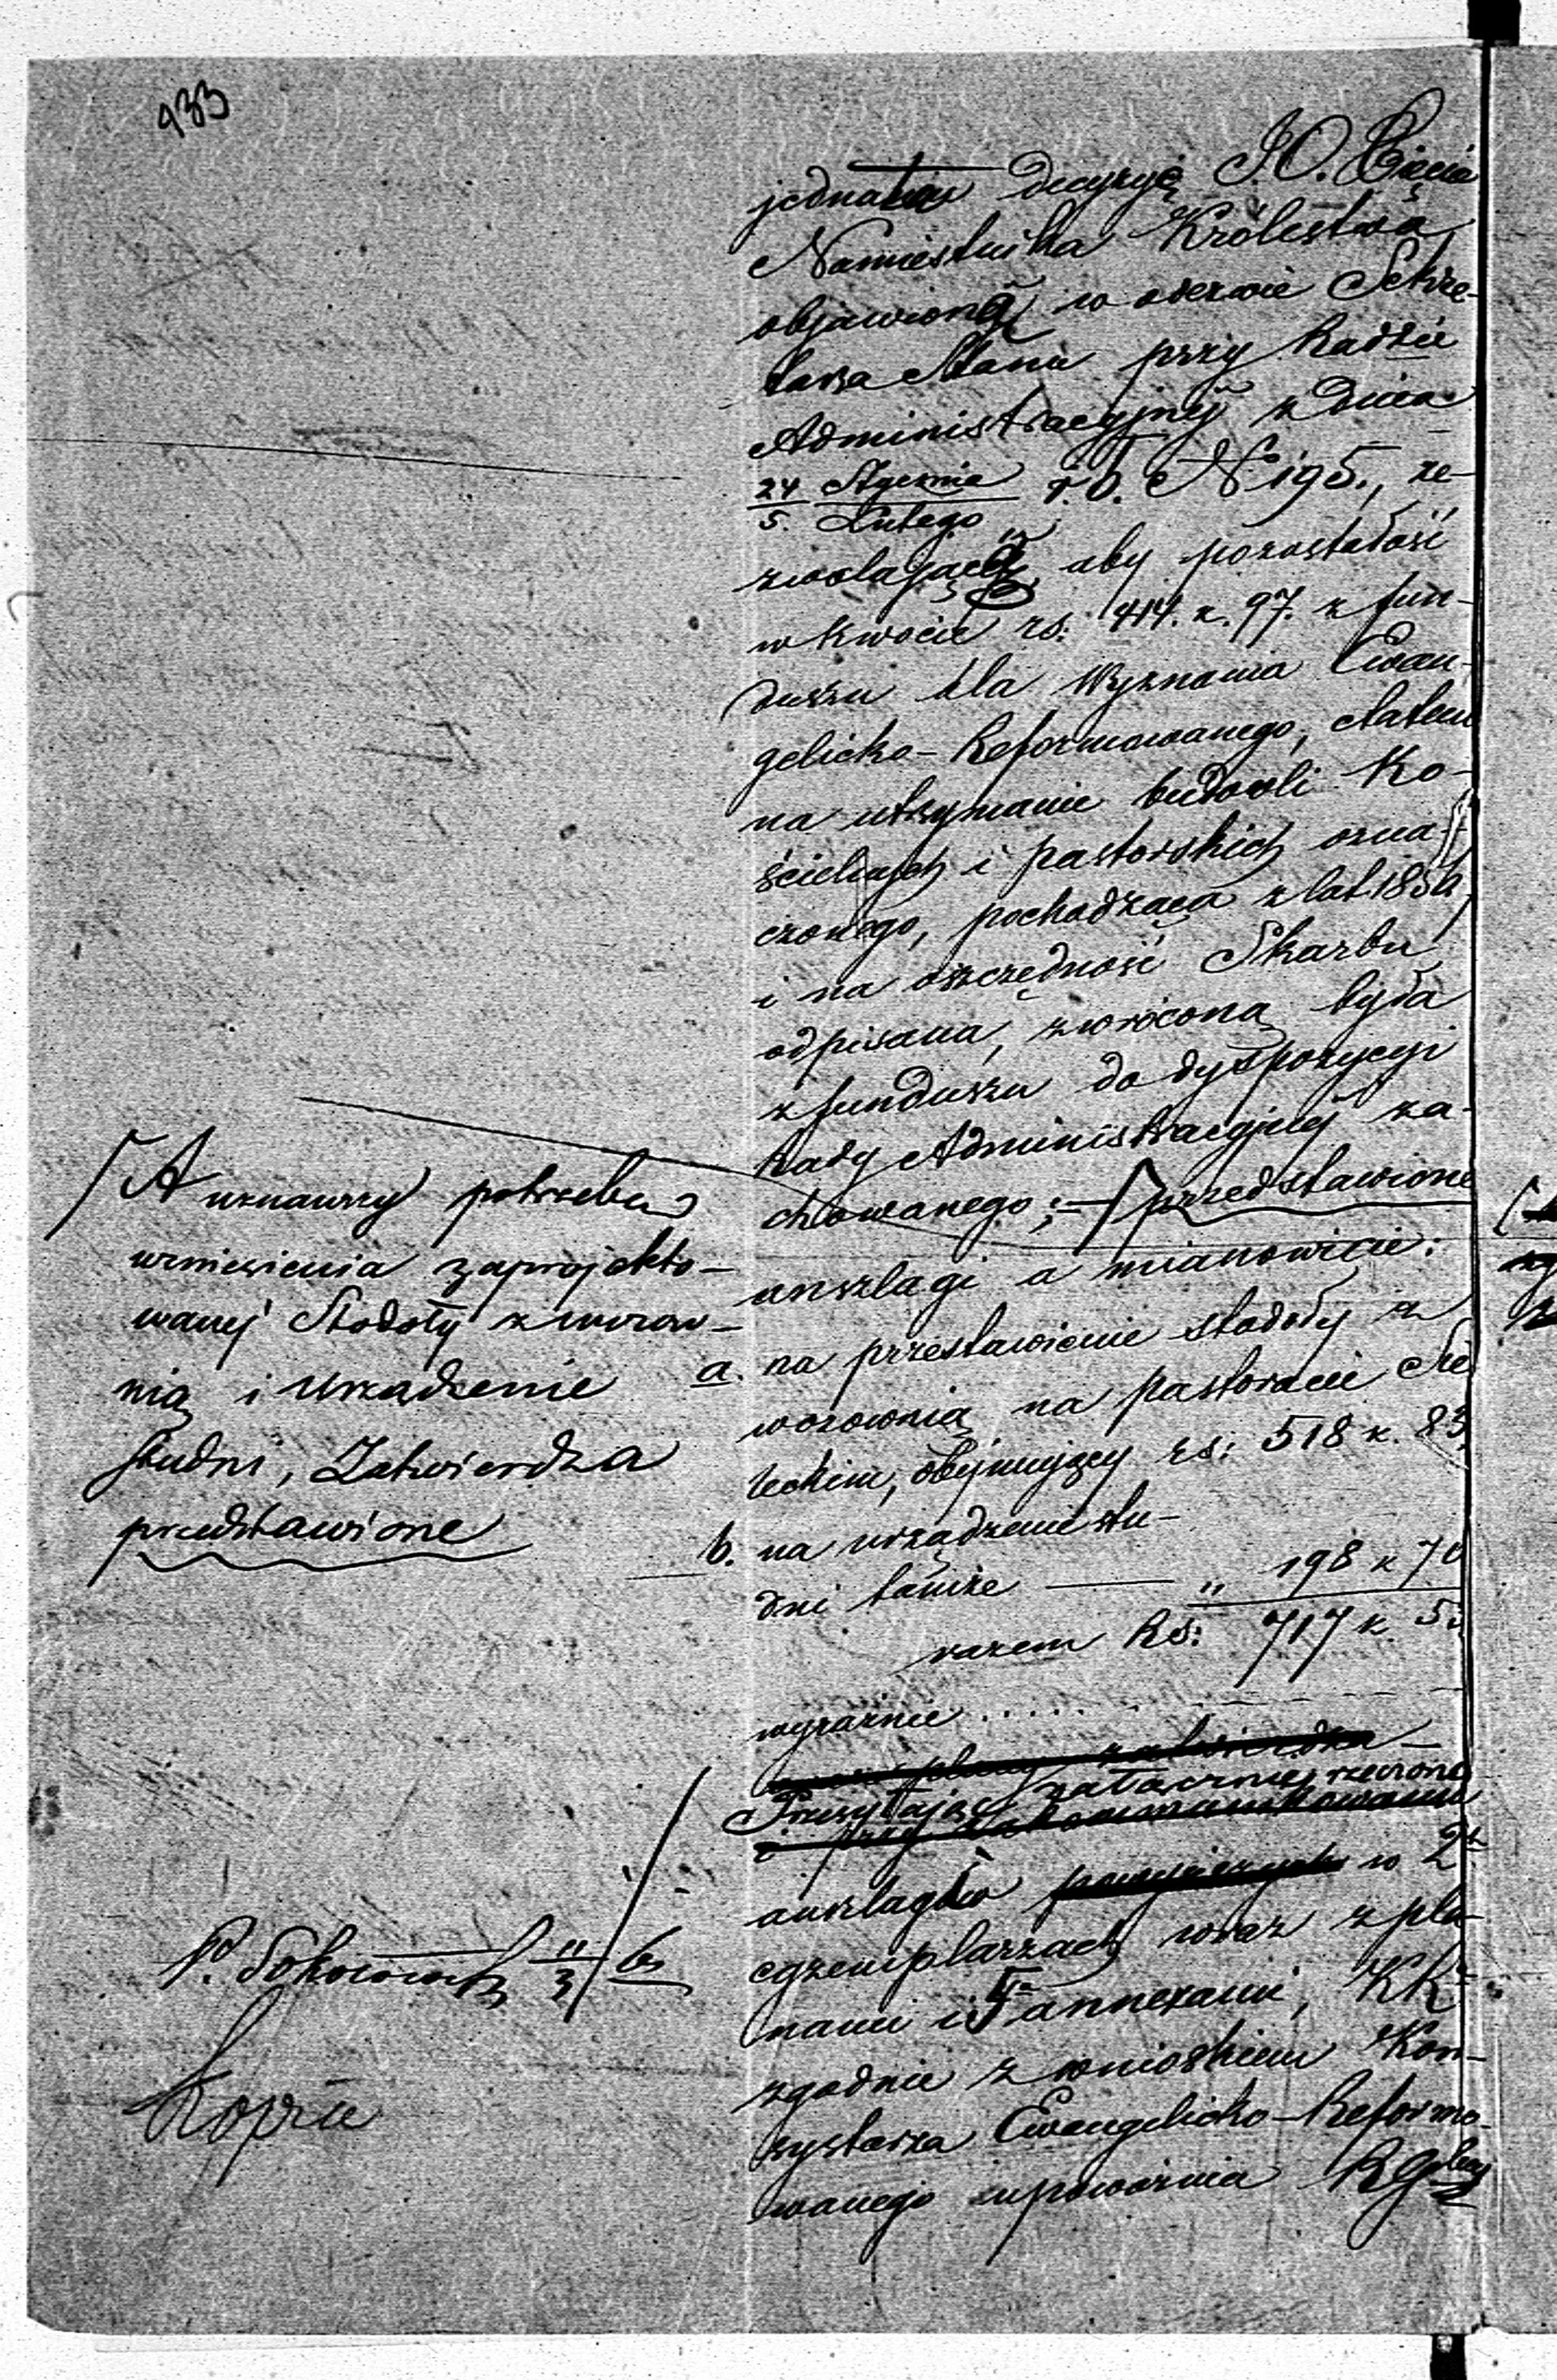 933
jednakże decyzyę JO. Xięcia
Namiestnika Królestwa,
objawioną w odezwie Sekre-
tarza Stanu przy Radzie
Administracyjnéj z dnia
24 Stycznia
5. Lutego r. b. N 195., ze-
zwalającą aby pozostałość
w kwocie rs: 414. k. 97. z fun-
duszu dla Wyznania Ewan-
gelicko-Reformowanego, etatem
na utrzymanie budowli Ko-
ścielnych i pastorskich ozna-
czonego, pochodząca z lat
i na oszczędność Skarbu
odpisana, zwróconą była
z funduszu do dyspozycyi
Rady Administracyjnéj za-
chowanego; przedstawione
anszlagi a mianowicie:
a. na przestawienie stodoły z
wozownią na pastoracie Sie
leckim, obejmujący rs: 518 k. 83
b. na urządzenie stu-
dni tamże " 198 k 70
razem Rs: 717 k. 53
wyraźnie .....
zatwierdza
Przesyłając załącznie rzeczone
i przy zakommunikowaniu
anszlagów powyższych w 2ch
egzemplarzach wraz z pla
nami i 5 annexami, KR
zgodnie z wnioskiem Kon-
systorza Ewangelicko-Reformo-
wanego upoważnia RGbny
A uznawszy potrzebę
wzniesienia zaprojekto-
wanéj Stodoły z wozow-
nią i urządzenie
studni, Zatwierdza
przedstawione
P. Sokołowski 11/3 61
Kopie